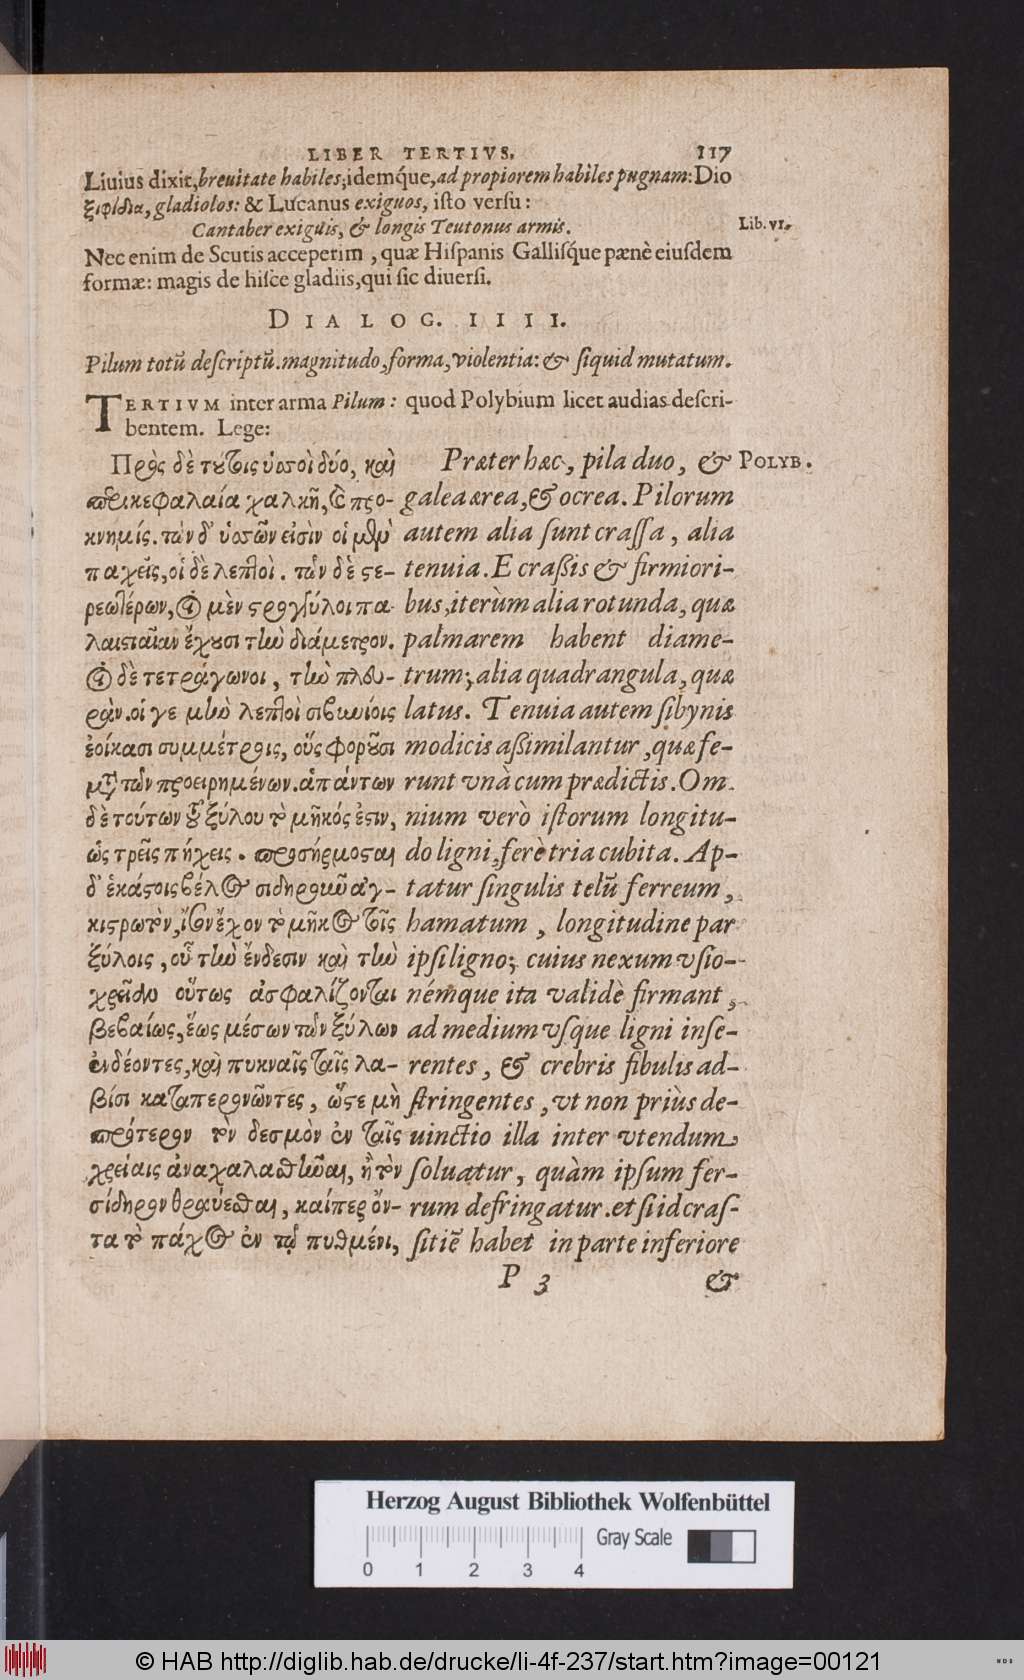 LIBER TERTIVS. 117
Liuius dixit, breuitate habiles; idemq́ue, ad propiorem habiles pugnam: Dio
ξιφίδια, gladiolos: & Lucanus exiguos, isto versu:
Cantaber exiguis, & longis Teutonus armis. Lib. VI.
Nec enim de Scutis acceperim, quæ Hispanis Gallisq́ue pænè eiusdem
formæ: magis de hisce gladiis, qui sic diuersi.
DIALOG. IIII.
Pilum totũ descriptũ. magnitudo, forma, violentia: & siquid mutatum.
TERTIVM inter arma Pilum: quod Polybium licet audias descri-
bentem. Lege:
Πρὸς δὲ τούτοις ὑσσοὶ δύο, καὶ
περικεφαλαία χαλκῆ, καὶ προ-
κνημίς. τῶν δ᾽ ὑσσῶν εἰσὶν οἱ μὲν
παχεῖς, οἱ δὲ λεπτοὶ. τῶν δὲ στε-
ρεωτέρων, οἱ μὲν στρογγύλοι πα-
λαιστιαῖαν ἔχουσι τὴν διάμετρον.
οἱ δὲ τετράγωνοι, τὴν πλευ-
ρὰν. οἵ γε μὴν λεπτοὶ σιβυνίοις
ἐοίκασι συμμέτροις, οὕς φοροῦσι
μετὰ τῶν προειρημένων. ἁπάντων
δὲ τούτων τοῦ ξύλου τὸ μῆκός ἐστιν,
ὡς τρεῖς πήχεις. προσήρμοσται
δ᾽ ἑκάστοις βέλος σιδηροῦν ἀγ-
κιστρωτὸν, ἴσον ἔχον τὸ μῆκος τοῖς
ξύλοις, οὗ τὴν ἔνδεσιν καὶ τὴν
χρείαν οὕτως ἀσφαλίζονται
βεβαίως, ἕως μέσων τῶν ξύλων
ἐνδέοντες, καὶ πυκναῖς ταῖς λα-
βίσι καταπερονῶντες, ὥστε μὴ
πρότερον τὸν δεσμὸν ἐν ταῖς
χρείαις ἀναχαλασθῆναι, ἢ τὸν
σίδηρον θραύεσθαι, καίπερ ὄν-
τα τὸ πάχος ἐν τῷ πυθμένι,
Præter hæc, pila duo, & POLYB.
galea ærea, & ocrea. Pilorum
autem alia sunt crassa, alia
tenuia. E crassis & firmiori-
bus, iterùm alia rotunda, quæ
palmarem habent diame-
trum; alia quadrangula, quæ
latus. Tenuia autem sibynis
modicis assimilantur, quæ fe-
runt vnà cum prædictis. Om-
nium verò istorum longitu-
do ligni, ferè tria cubita. Ap-
tatur singulis telũ ferreum,
hamatum, longitudine par
ipsi ligno; cuius nexum vsio-
némque ita validè firmant,
ad medium vsque ligni inse-
rentes, & crebris fibulis ad-
stringentes, vt non priùs de-
uinctio illa inter vtendum
soluatur, quàm ipsum fer-
rum defringatur. et si id cras-
sitiẽ habet in parte inferiore
P 3 &
Herzog August Bibliothek Wolfenbüttel
Gray Scale
0 1 2 3 4
© HAB http://diglib.hab.de/drucke/li-4f-237/start.htm?image=00121